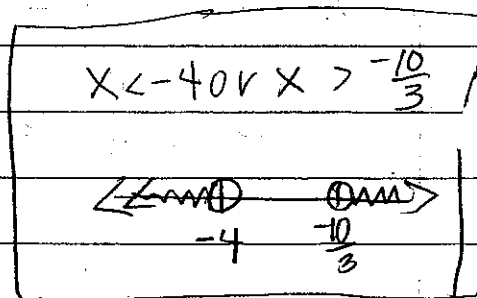 x < -4 or x > -10/3
-4 -10/3